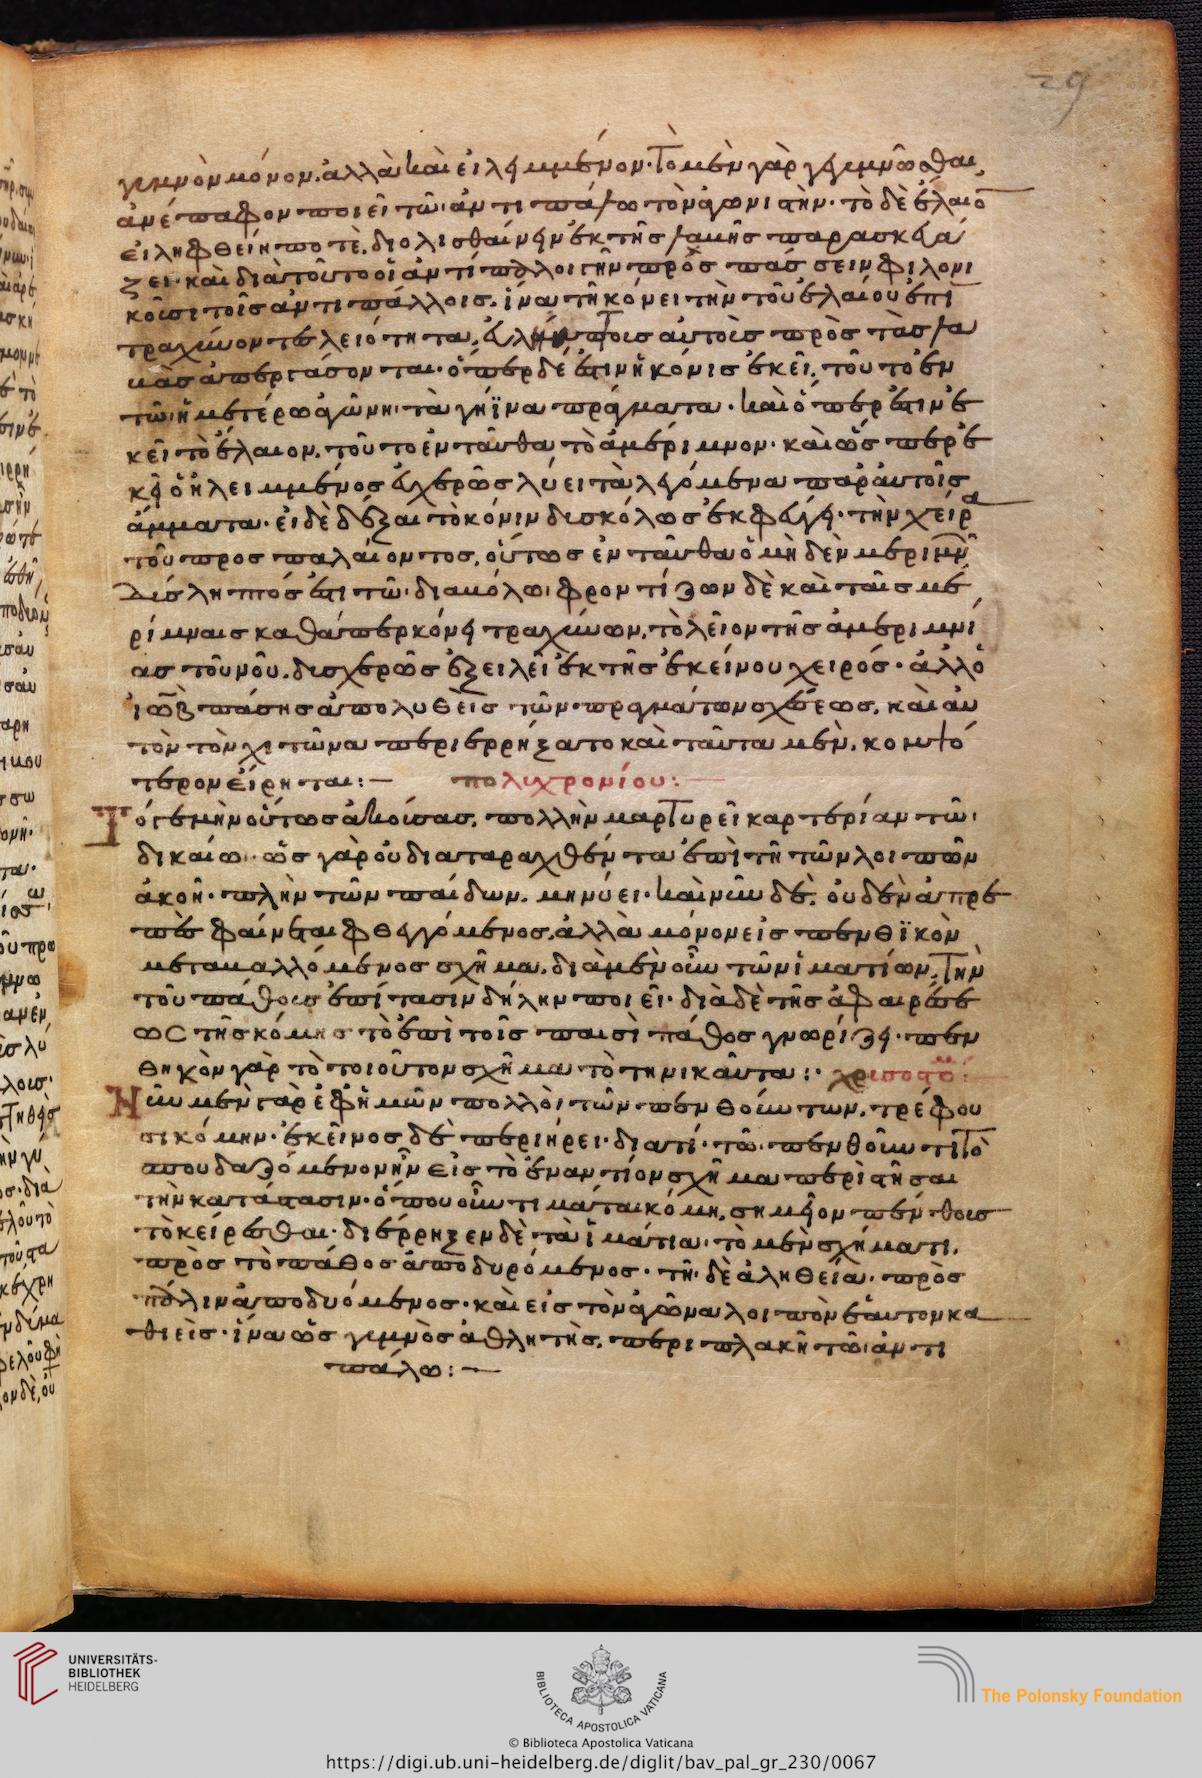 29
γυμνὸν μόνον. ἀλλὰ καὶ εἰλημμένον· Τὸ μὲν γὰρ γεγυμνῶσθαι,
ἀνέπαφον ποιεῖ τῶ ἀντιπάλω τὸν ἀγωνιστὴν· τὸ δὲ ἐλαίο
ειληφθείη ποτὲ, διολισθαίνειν ἐκ τῆς παρασκευά
ζει· καὶ διὰ τοῦτο οἱ ἀντίπαλοι τὴν πρὸς φιλονι
κοῦσι τοῖς ἀντιπάλλοις. ἵνα τῆ κόνει τὴν τοῦ ἐλαίου ἐπι
τραχύνοντες λειότητα, αὐτοῖς πρὸς τὰς
ὅπερ δέ ἐστιν ἡ κόνις ἐκεῖ, τοῦτο ἐν
τῶ ἡμετέρω ἀγῶνι· τὰ γήϊνα πράγματα· καὶ ὅπερ ἐστιν ἐ
κεῖ τὸ ἔλαιον, τοῦτο ἐνταῦθα τὸ ἀμέριμνον· καὶ ὥσπερ ἐ
κεῖ ὁ ἠλειμμένος εὐχερῶς λύει τὰ λεγόμενα παρ' αὐτοῖς
ἅμματα· εἰ δὲ δέξαι τὸ κόνιν δισκόλως ἐκφεύγει· τὴν χεῖρα
τοῦ προσπαλαίοντος, οὕτως ἐνταῦθα ὁ μὴδὲν μεριμνῶν
δύσληπτός ἐστι τῶ διαβόλω· φροντίζων δὲ καὶ ταῖς με
ρίμναις καθάπερ κόνει τραχύνων, τὸ λεῖον τῆς ἀμεριμνί
ας τοῦ νοῦ, δισχερῶς ἐξειλεῖ ἐκ τῆς ἐκείνου χειρός· ἀλλ' ὁ
ἰὼβ πάσης ἀπολυθεὶς τῶν πραγμάτων σχέσεως, καὶ αὐ
τὸν τὸν χιτῶνα περιερρήξατο καὶ ταῦτα μὲν, κομψό
τερον εἴρηται:—     πολιχρονίου:
Τό γε μὴν οὕτως ἀκούσας, πολλὴν μαρτυρεῖ καρτερίαν τῶ
δικαίω· ὡς γὰρ οὐ διαταραχθέντα ἐπὶ τῆ τῶν λοιπῶν
ἀκοῆ· πλὴν τῶν παίδων, μηνύει· καὶ νῦν δὲ, οὐδὲν ἀπρε
πὲς φαίνεται φθεγγόμενος, ἀλλὰ μόνον εἰς πενθϊκὸν
μεταβαλλόμενος σχῆμα, διὰ μὲν οὖν τῶν ἱματίων, Τὴν
τοῦ πάθους ἐπίτασιν δήλην ποιεῖ· διὰ δὲ τῆς ἀφαιρέσε
ως τῆς κόμης τὸ ἐπὶ τοῖς παισὶ πάθος γνωρίζει· πεν
θηκὸν γὰρ τὸ τοιοῦτον σχῆμα τὸ τηνικαῦτα:·
Νῦν μὲν γὰρ ἐφ' ἡμῶν πολλοὶ τῶν πενθούντων, τρέφου
σι κόμην· ἐκεῖνος δὲ περιήρει· διατί· τῶ πενθοῦντι Τὸ
σπουδαζόμενον ἦν εἰς τὸ ἐναντίον σχῆμα περιστῆσαι
τὴν κατάστασιν· ὅπου οὖν τιμᾶται κόμη, σημεῖον πένθους
τὸ κείρεσθαι· διέρρηξεν δὲ τὰ ἱμάτια· τὸ μὲν σχήματι,
πρὸς τὸ πάθος ἀποδυρόμενος· τῆ δὲ ἀληθεία· πρὸς
πάλιν ἀποδυόμενος· καὶ εἰς τὸν ἀγῶνα λοιπὸν ἑαυτον κα
θιεὶς· ἵνα ὡς γυμνὸς ἀθλητὴς, περιπλακῆ τῶ ἀντι
πάλω:—
UNIVERSITÄTS-
BIBLIOTHEK
HEIDELBERG
BIBLIOTECA APOSTOLICA VATICANA
The Polonsky Foundation
© Biblioteca Apostolica Vaticana
https://digi.ub.uni-heidelberg.de/diglit/bav_pal_gr_230/0067